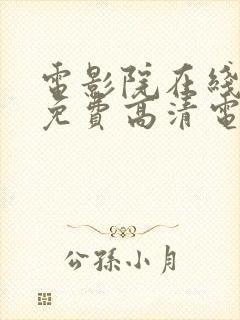 電影院在綫
免費高清電
公孫小月